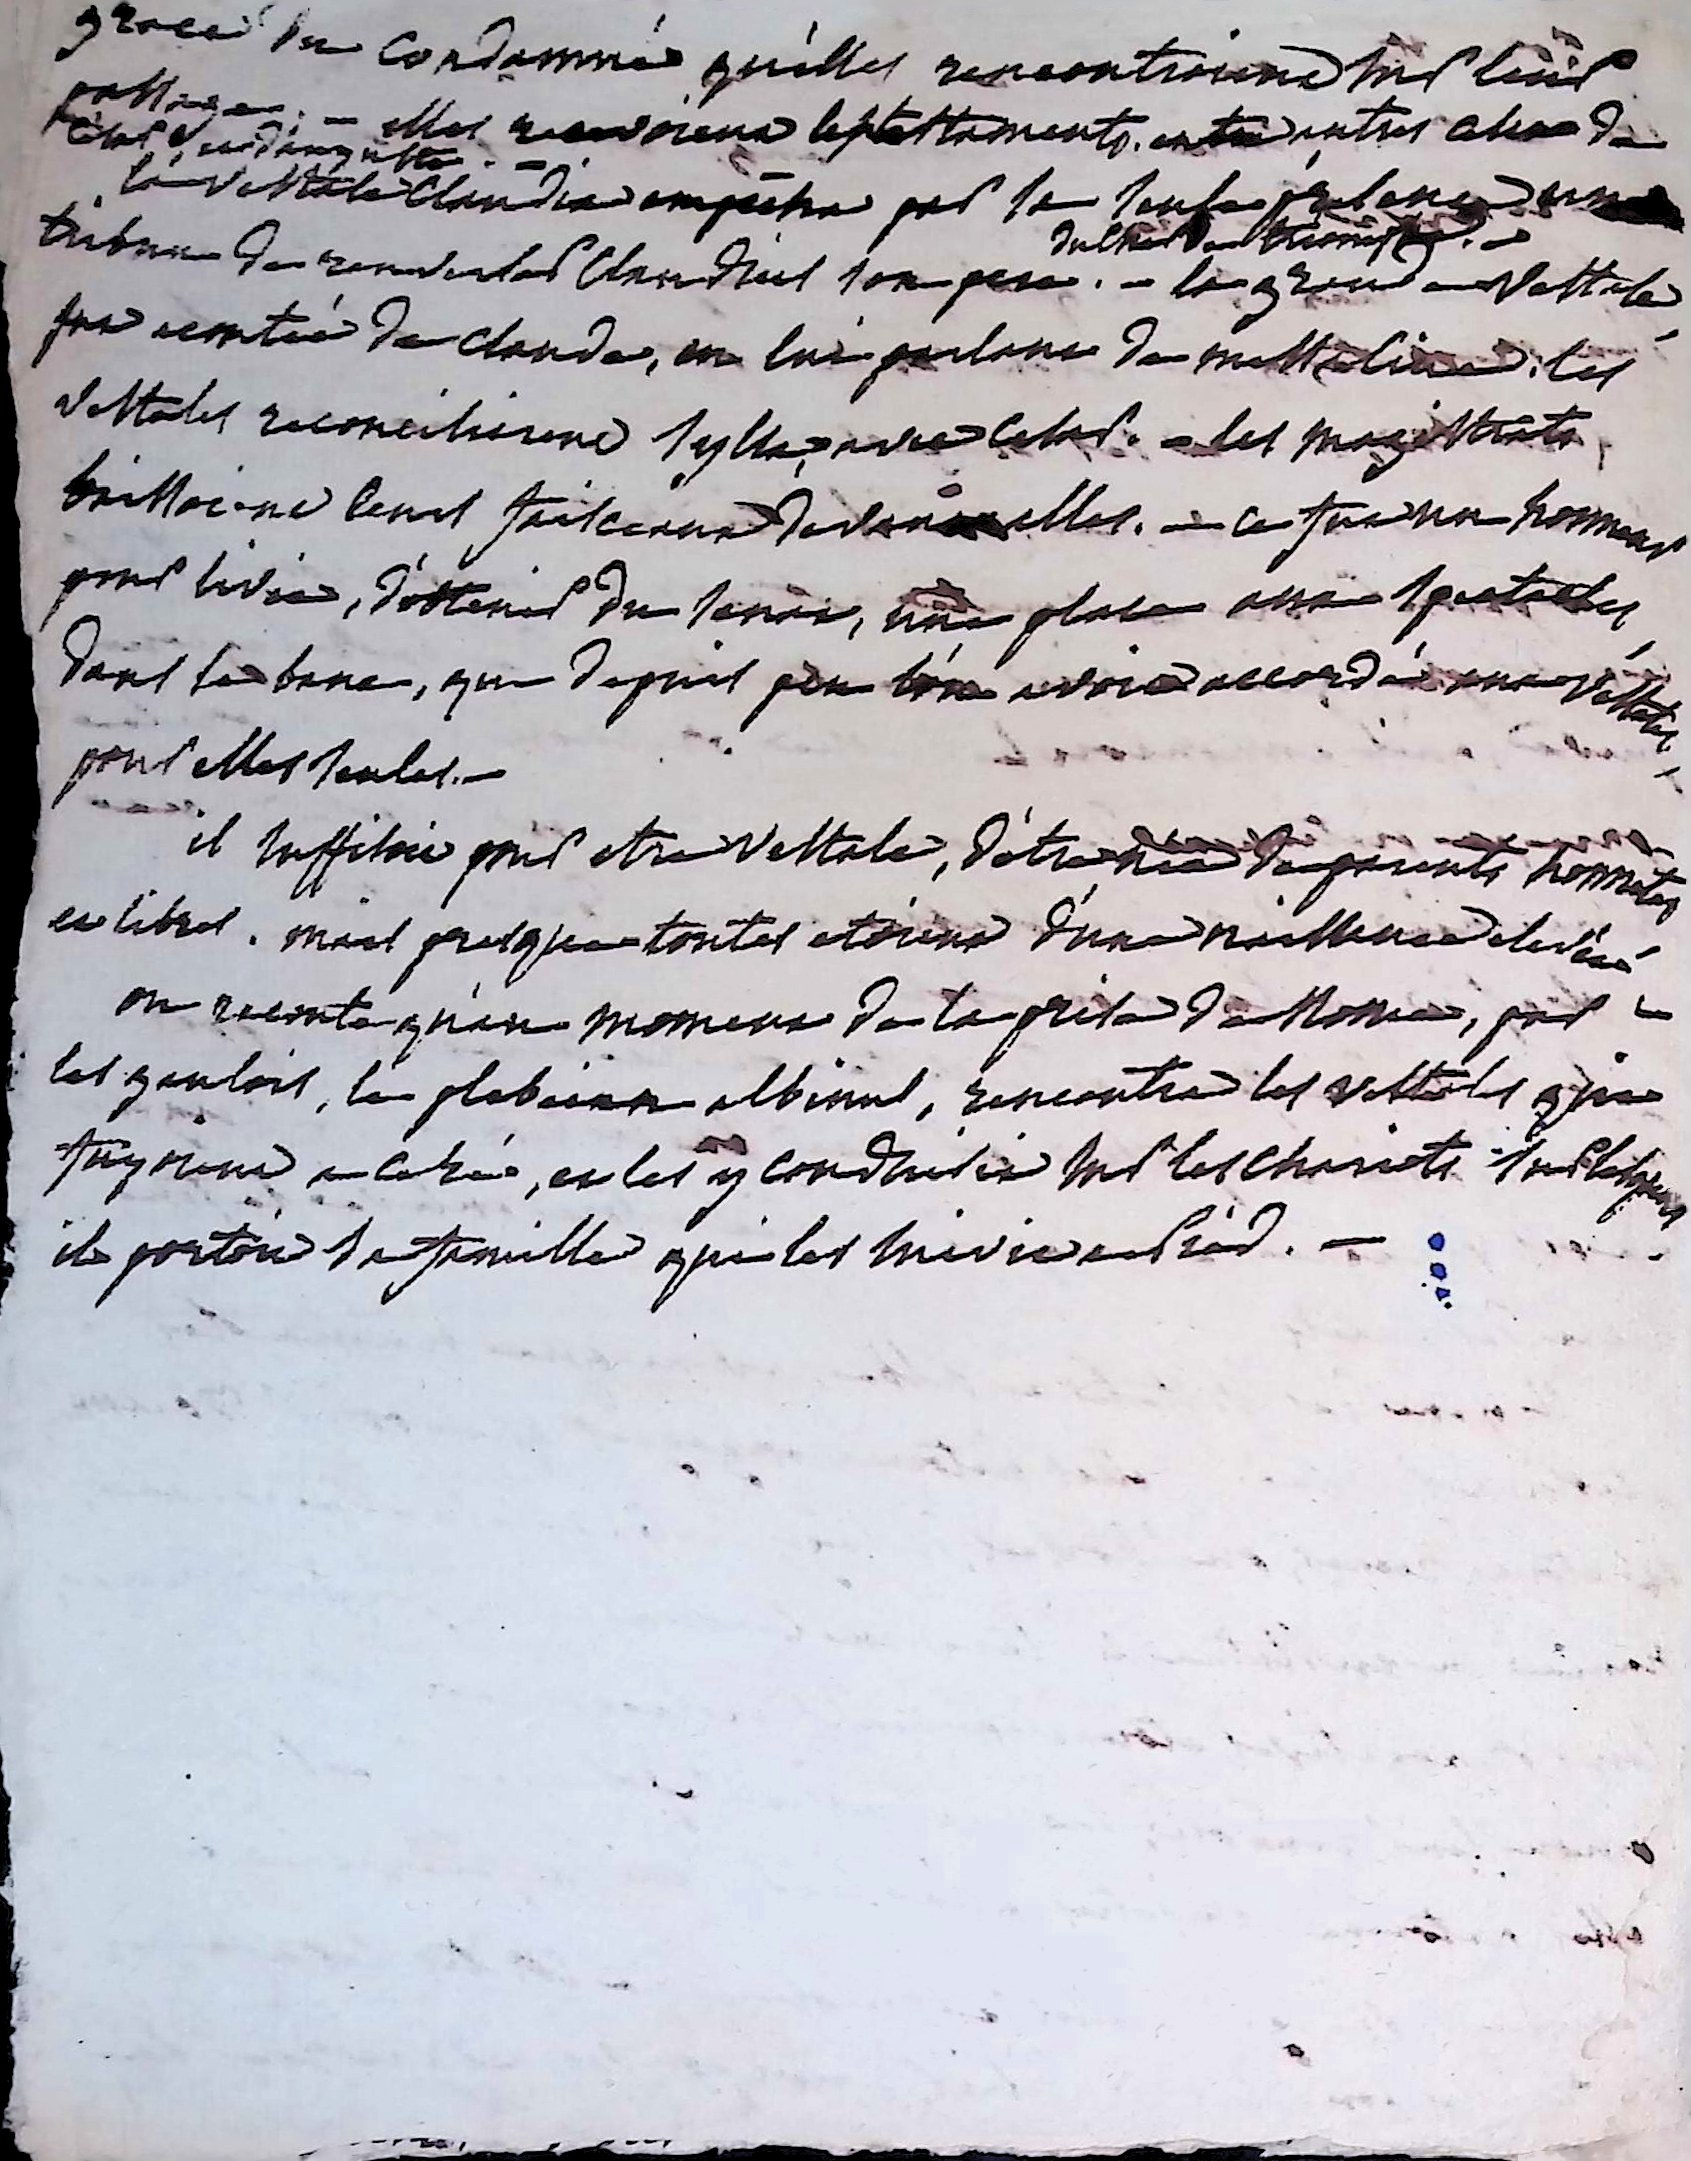 grace du condamné qu'elles rencontroient sur leur
passage. — elles recevoient les testaments. entre autres celui de
César et d'auguste. —
la vestale Claudia empêcha par sa seule présence un
tribun de renverser Claudius son pere.
du char de triomphe. — la grande vestale
fut ecoutée de Claude, en lui parlant de messaline. les
vestales reconcilierent Sylla, avec César. — les magistrats
baissoient leurs faisceaux devant elles. — ce fut un honneur
pour livie, d'obtenir du senat, une place aux spectacles
dans le banc, que depuis peu l'on avoit accordé aux vestales
pour elles seules. —
il suffisoit pour etre vestale, d'être née de parents honnetes
et libres. mais presque toutes etoient d'une naissance elevée
on raconte qu'au moment de la prise de Rome, par
les gaulois, le plebeien albinus, rencontra les vestales qui
fuyoient a Céré, et les y conduisit sur les chariots sur lesquels
il portoit sa famille qui les suivit a pied. —